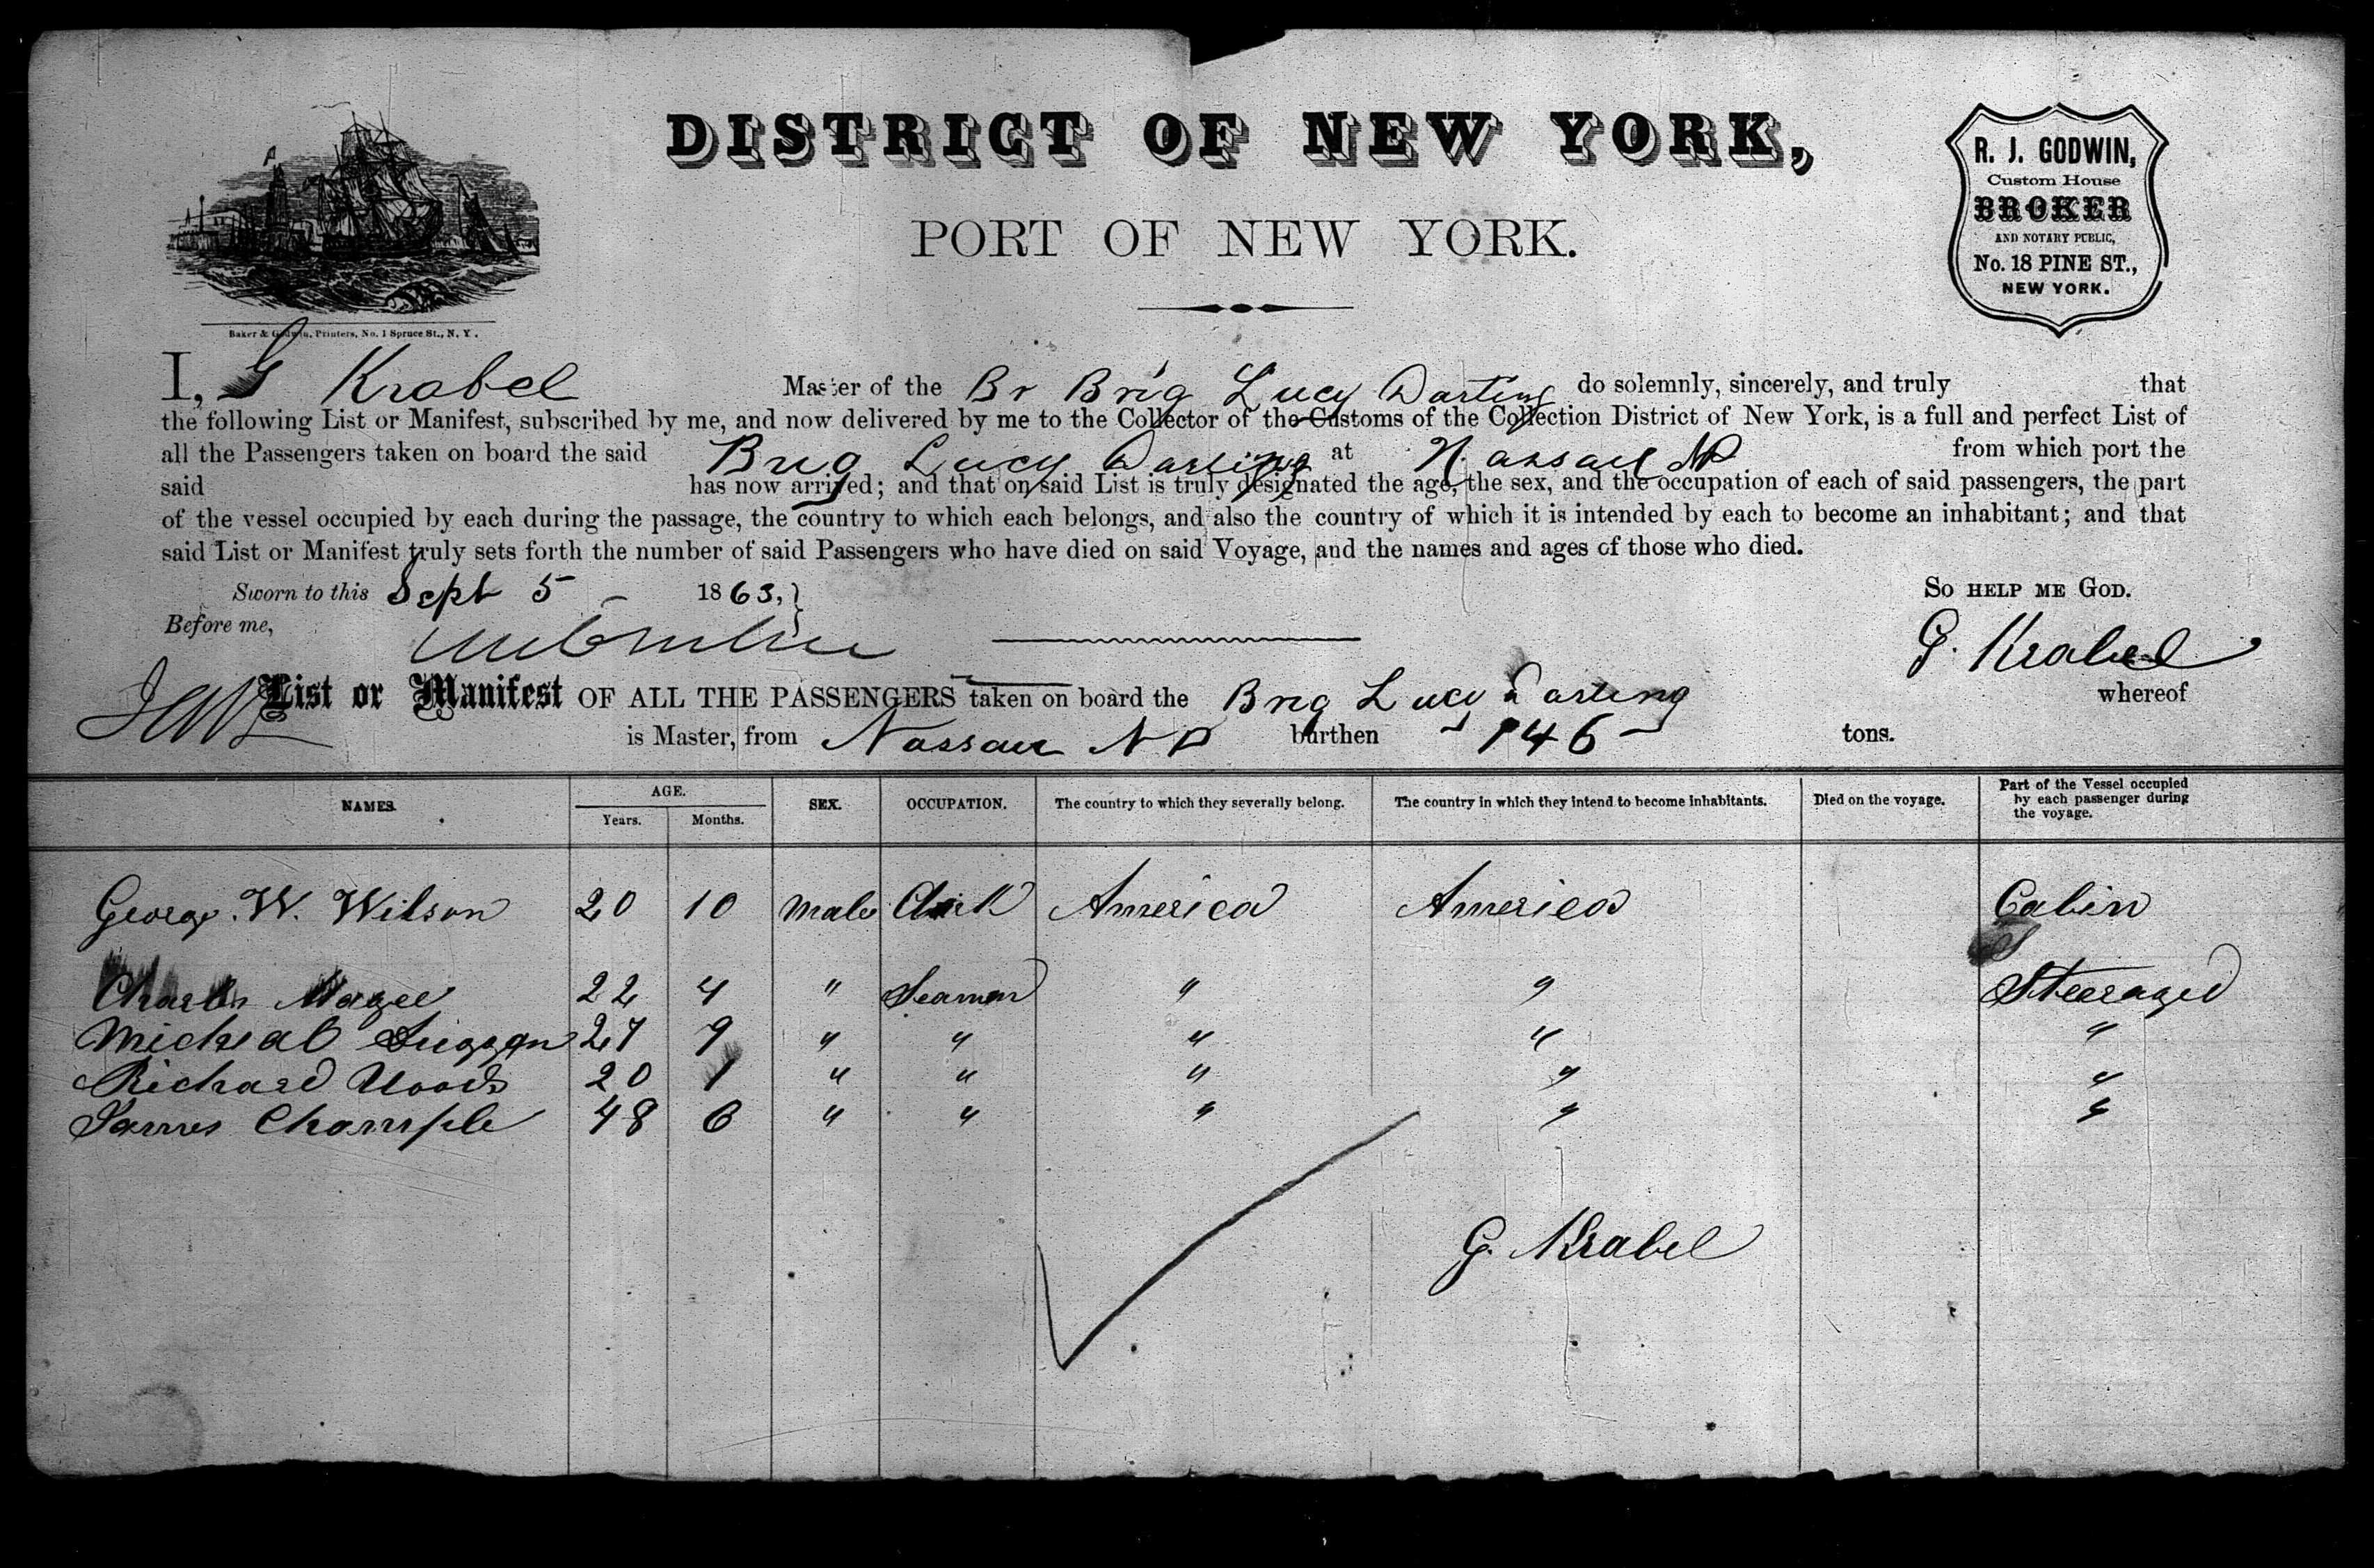 DISTRICT OF NEW YORK,
PORT OF NEW YORK.
R. J. GODWIN,
Custom House
BROKER
AND NOTARY PUBLIC,
No. 18 PINE ST.,
NEW YORK.
Baker & Godwin, Printers, No. 1 Spruce St., N. Y.
I, G Krabel Master of the Br Brig Lucy Darling do solemnly, sincerely, and truly that
the following List or Manifest, subscribed by me, and now delivered by me to the Collector of the Customs of the Collection District of New York, is a full and perfect List of
all the Passengers taken on board the said Brig Lucy Darling at Nassau NP from which port the
said has now arrived; and that on said List is truly designated the age, the sex, and the occupation of each of said passengers, the part
of the vessel occupied by each during the passage, the country to which each belongs, and also the country of which it is intended by each to become an inhabitant; and that
said List or Manifest truly sets forth the number of said Passengers who have died on said Voyage, and the names and ages of those who died.
Sworn to this Sept 5 1863, So help me God.
Before me,
G. Krabel
List or Manifest OF ALL THE PASSENGERS taken on board the Brig Lucy Darling whereof
is Master, from Nassau NP burthen 146 tons.
NAMES. AGE. Years. Months. SEX. OCCUPATION. The country to which they severally belong. The country in which they intend to become inhabitants. Died on the voyage. Part of the Vessel occupied by each passenger during the voyage.
George W. Wilson 20 10 Male Clerk America America Cabin
Charles Magee 22 4 " Seaman " " Steerage
Micheal 27 9 " " " " "
Richard Woods 20 1 " " " " "
James Chample 48 6 " " " " "
G. Krabel